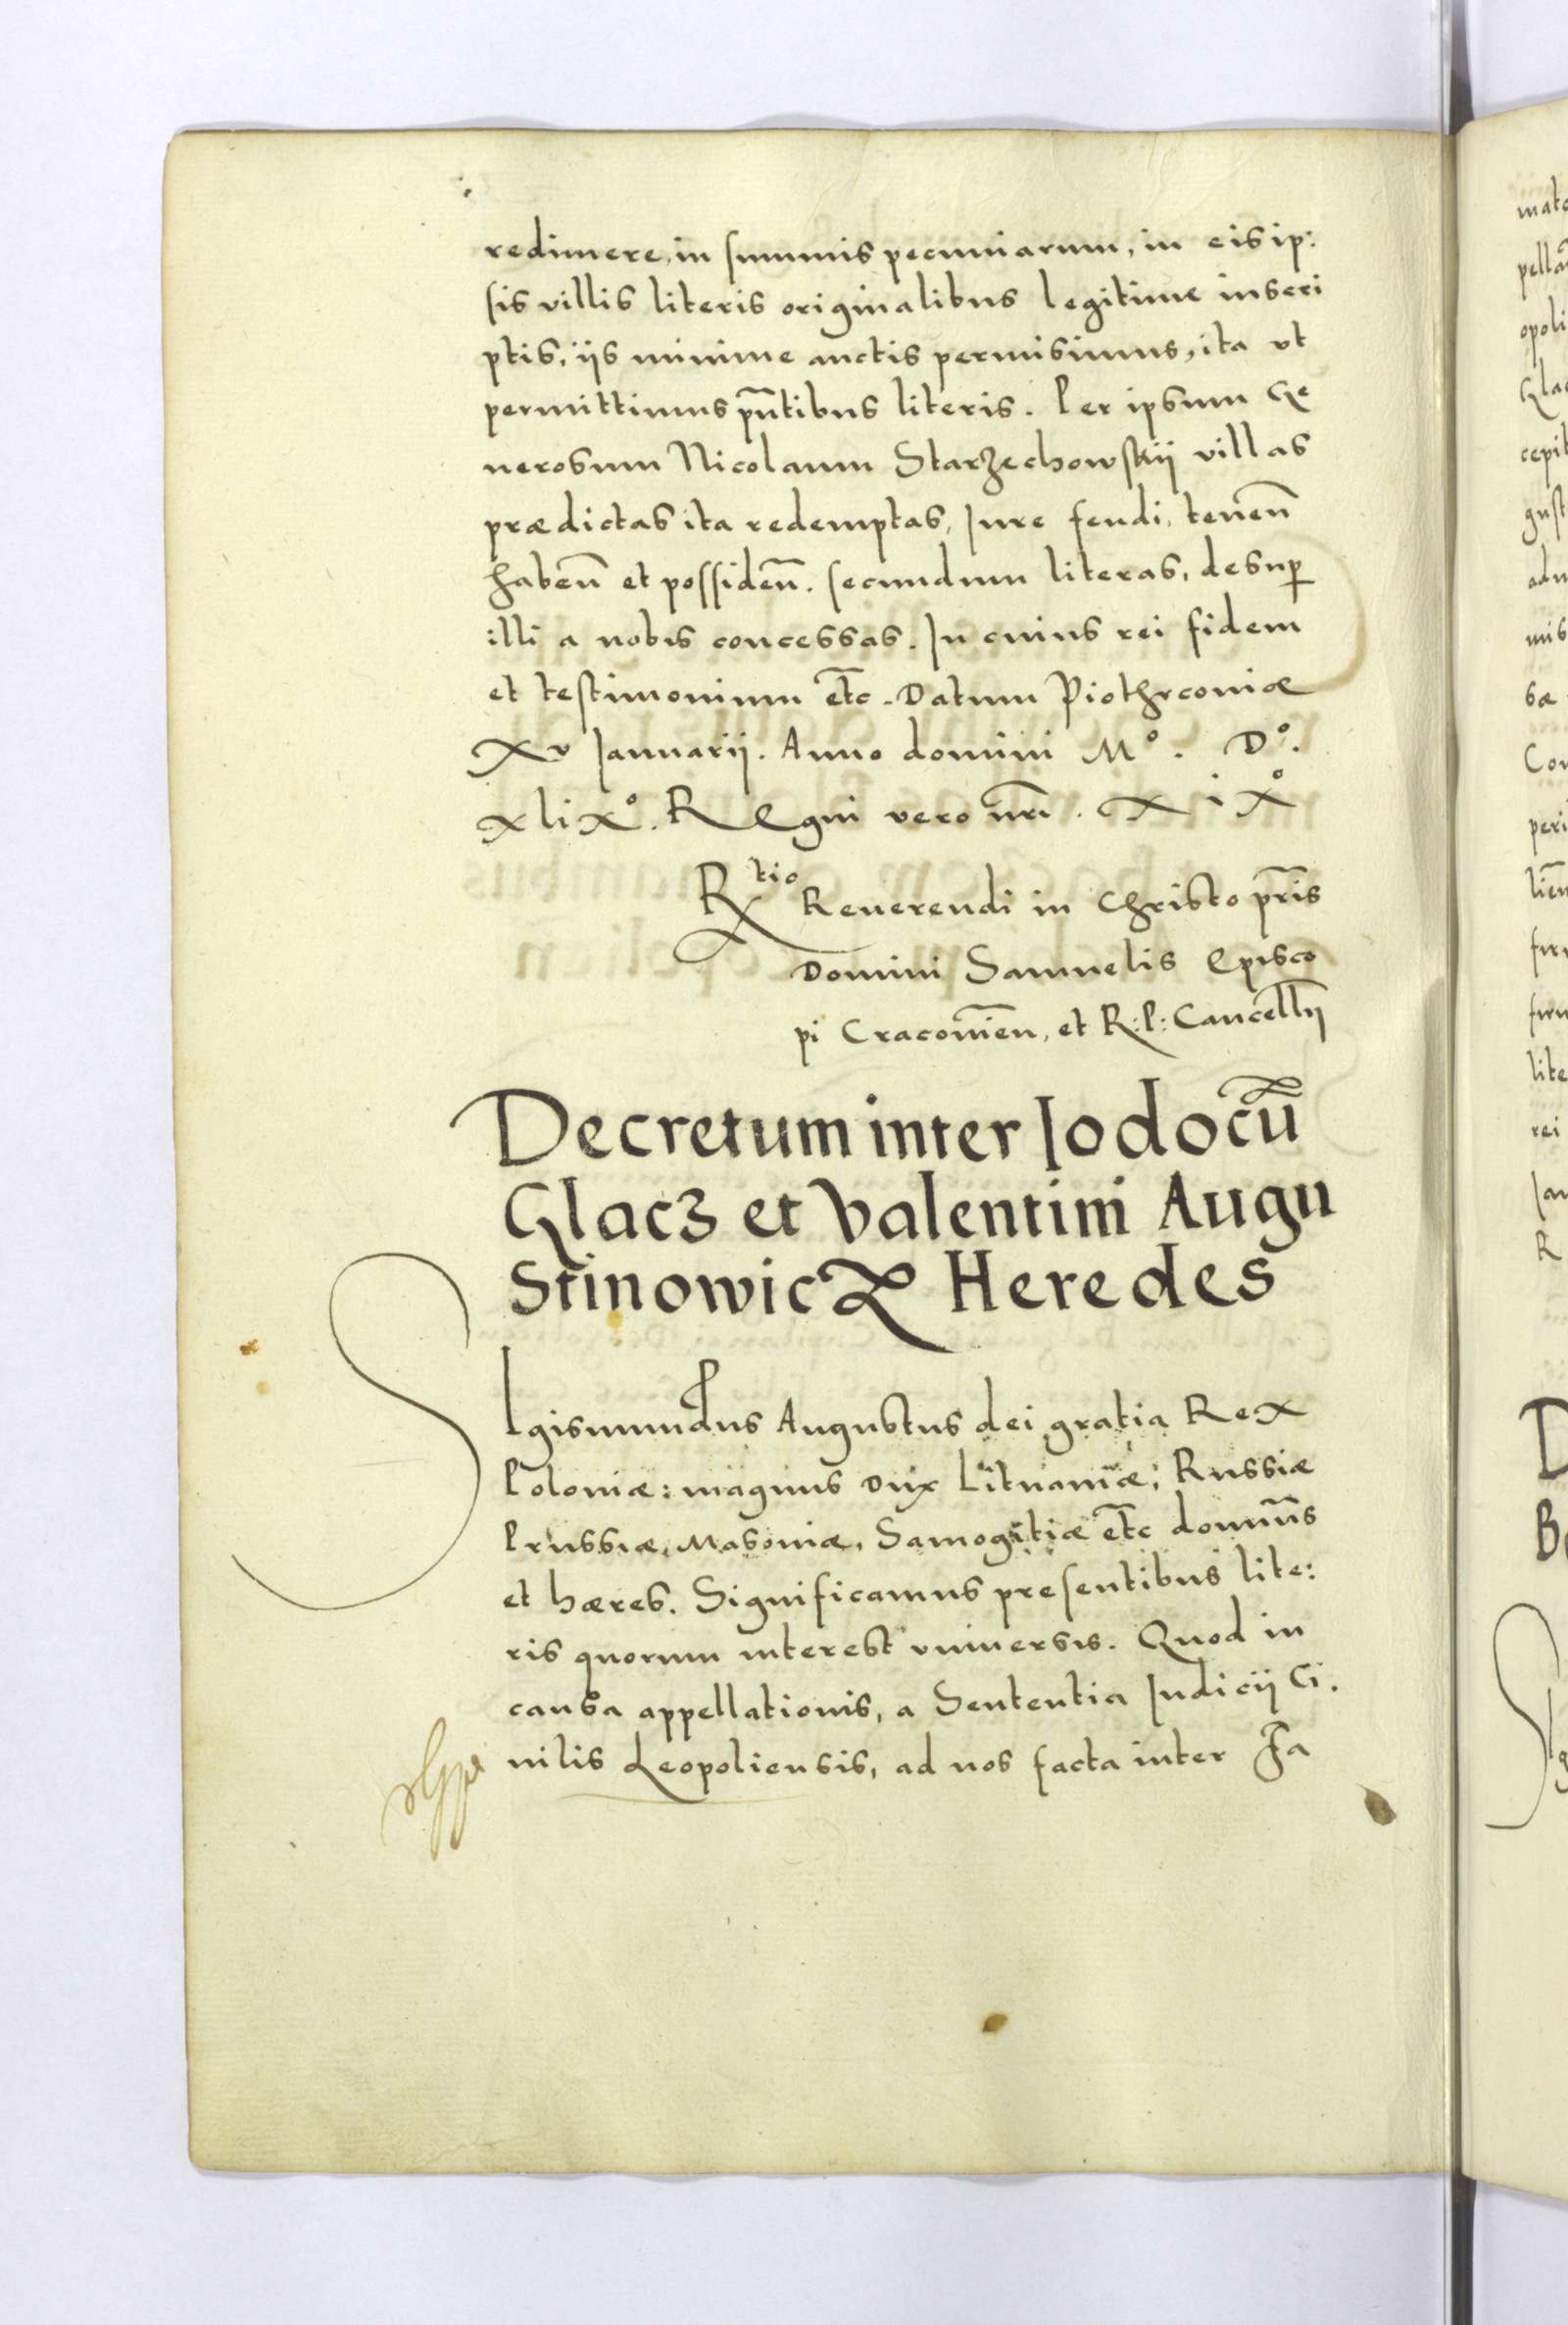 redimere, in summis pecuniarum, in eis ip:
sis villis literis originalibus legitime inscri
ptis, ijs minime auctis permisimus, ita vt
permittimus pñtibus literis. Per ipsum Ge
nerosum Nicolaum Starzechowskij villas
prædictas ita redemptas, Iure feudi, teneñ
habeñ et possideñ. secundum literas, desup̱
illi a nobis concessas. In cuius rei fidem
et testimonium etc̃. Datum Piothrconiæ
Xv Ianuarij. Anno domini Mº. Dº.
xlixº. REgni vero nrĩ. XiXº
Rtio Reuerendi in Christo pr̃is
Domini Samuelis Episco
pi Cracovieñ, et R: P: Cancellr̃ij
Decretum inter Iodocũ
Glacz et Valentini Augu
Stinowicz Heredes
SIgismundus Augustus dei gratia Rex
Poloniæ: magnus Dux Lituaniæ, Russiæ
Prussiæ, Masoviæ, Samogitiæ etc̃ domiñs
et hæres. Significamus presentibus lite:
ris quorum interest vniuersis. Quod in
causa appellationis, a Sententia Iudicij Ci.
uilis Leopoliensis, ad nos facta inter Fa
mato
pella
opoli
Gla
cepit
gust
adu
mis
sæ
Con
peri
lieñ
lite
rei
Ian
R
D